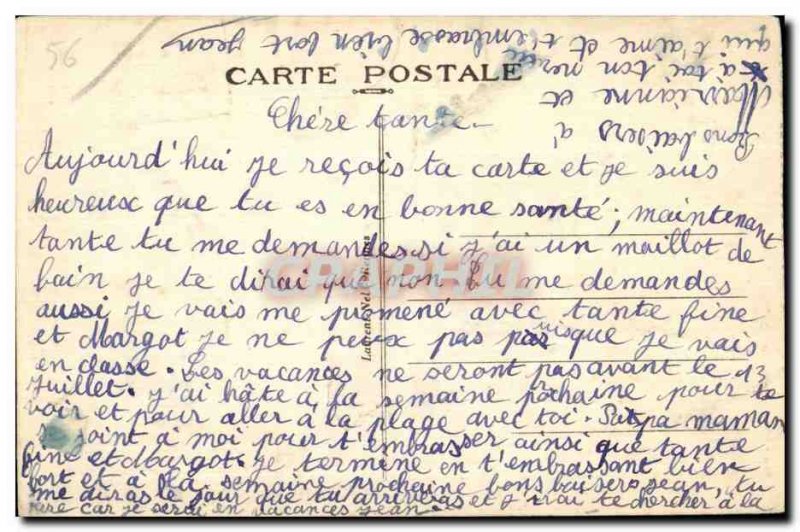 56
CARTE POSTALE
Chére tante
Aujourd'hui je reçois ta carte et je suis
heureux que tu es en bonne santé; maintenant
tante tu me demandes si j'ai un maillot de
bain je te dirai que non tu me demandes
aussi je vais me promené avec tante fine
et Margot je ne peux pas puisque je vais
en classe. Les vacances ne seront pas avant le 13
juillet. j'ai hâte à la semaine prochaine pour te
voir et pour aller à la plage avec toi. Papa maman
se joint à moi pour t'embrasser ainsi que tante
fine et Margot. je termine en t'embrassant bien
fort et à la semaine prochaine bons baisers jean, tu
me diras le jour que tu arriveras et j'irai te chercher à la
gare car je serai en vacances jean.
Bons baisers à
Marianne et
à toi ton neveu
qui t'aime et t'embrasse bien fort jean
CPAPHIL